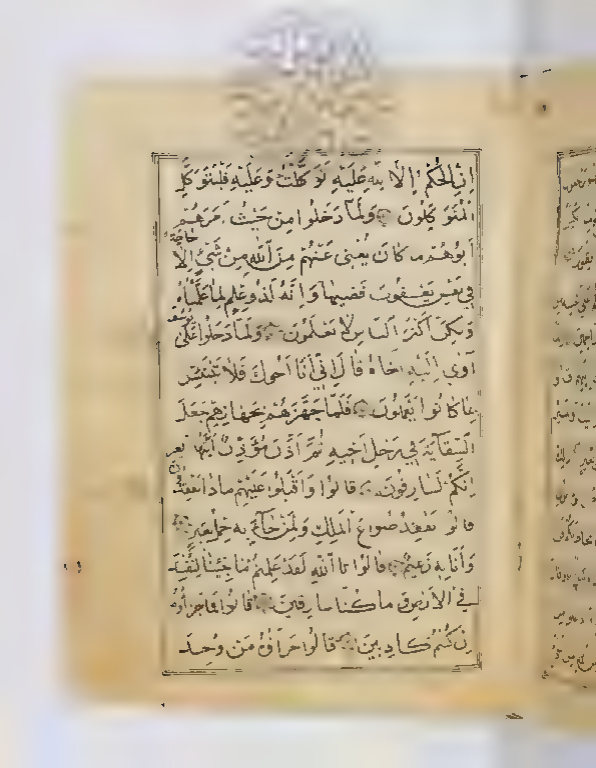 اِنِ الْحُكْمُ اِلَّا لِلّٰهِ عَلَيْهِ تَوَكَّلْتُ وَعَلَيْهِ فَلْيَتَوَكَّلِ
الْمُتَوَكِّلُونَ وَلَمَّا دَخَلُوا مِنْ حَيْثُ اَمَرَهُمْ
اَبُوهُمْ مَا كَانَ يُغْنِى عَنْهُمْ مِنَ اللّٰهِ مِنْ شَىْءٍ اِلَّا حَاجَةً
فِى نَفْسِ يَعْقُوبَ قَضٰيهَا وَاِنَّهُ لَذُو عِلْمٍ لِمَا عَلَّمْنَاهُ
وَلٰكِنَّ اَكْثَرَ النَّاسِ لَا يَعْلَمُونَ وَلَمَّا دَخَلُوا عَلٰى يُوسُفَ
اٰوٰى اِلَيْهِ اَخَاهُ قَالَ اِنِّى اَنَا اَخُوكَ فَلَا تَبْتَئِسْ
بِمَا كَانُوا يَعْمَلُونَ فَلَمَّا جَهَّزَهُمْ بِجَهَازِهِمْ جَعَلَ
السِّقَايَةَ فِى رَحْلِ اَخِيهِ ثُمَّ اَذَّنَ مُؤَذِّنٌ اَيَّتُهَا الْعِيرُ
اِنَّكُمْ لَسَارِقُونَ قَالُوا وَاَقْبَلُوا عَلَيْهِمْ مَاذَا تَفْقِدُونَ
قَالُوا نَفْقِدُ صُوَاعَ الْمَلِكِ وَلِمَنْ جَاءَ بِهِ حِمْلُ بَعِيرٍ
وَاَنَا بِهِ زَعِيمٌ قَالُوا تَاللّٰهِ لَقَدْ عَلِمْتُمْ مَا جِئْنَا لِنُفْسِدَ
فِى الْاَرْضِ وَمَا كُنَّا سَارِقِينَ قَالُوا فَمَا جَزَاؤُهُ
اِنْ كُنْتُمْ كَاذِبِينَ قَالُوا جَزَاؤُهُ مَنْ وُجِدَ